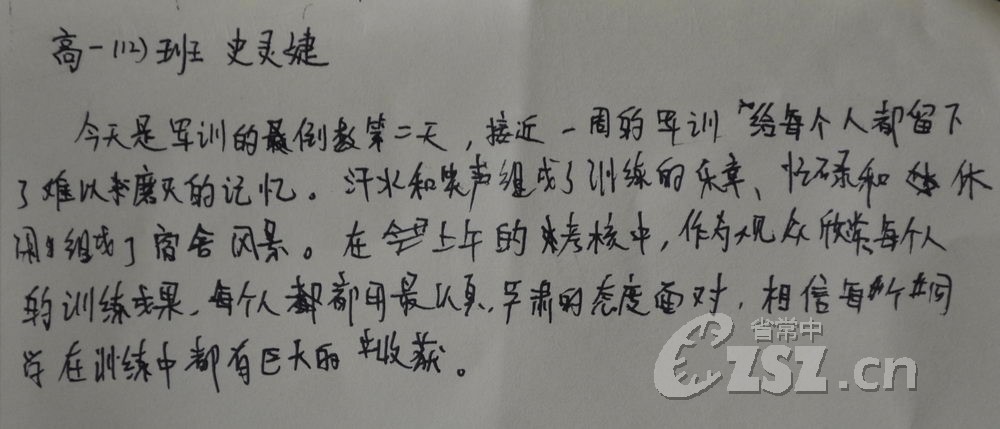 高一(12)班 史灵婕
今天是军训的最倒数第二天，接近一周的军训给每个人都留下
了难以磨灭的记忆。汗水和笑声组成了训练的乐章、忙碌和休
闲组成了宿舍风景。在今上午的考核中，作为观众欣赏每个人
的训练成果，每个人都用最认真、严肃的态度面对，相信每个同
学在训练中都有巨大的收获。
省常中
CZSZ.cn